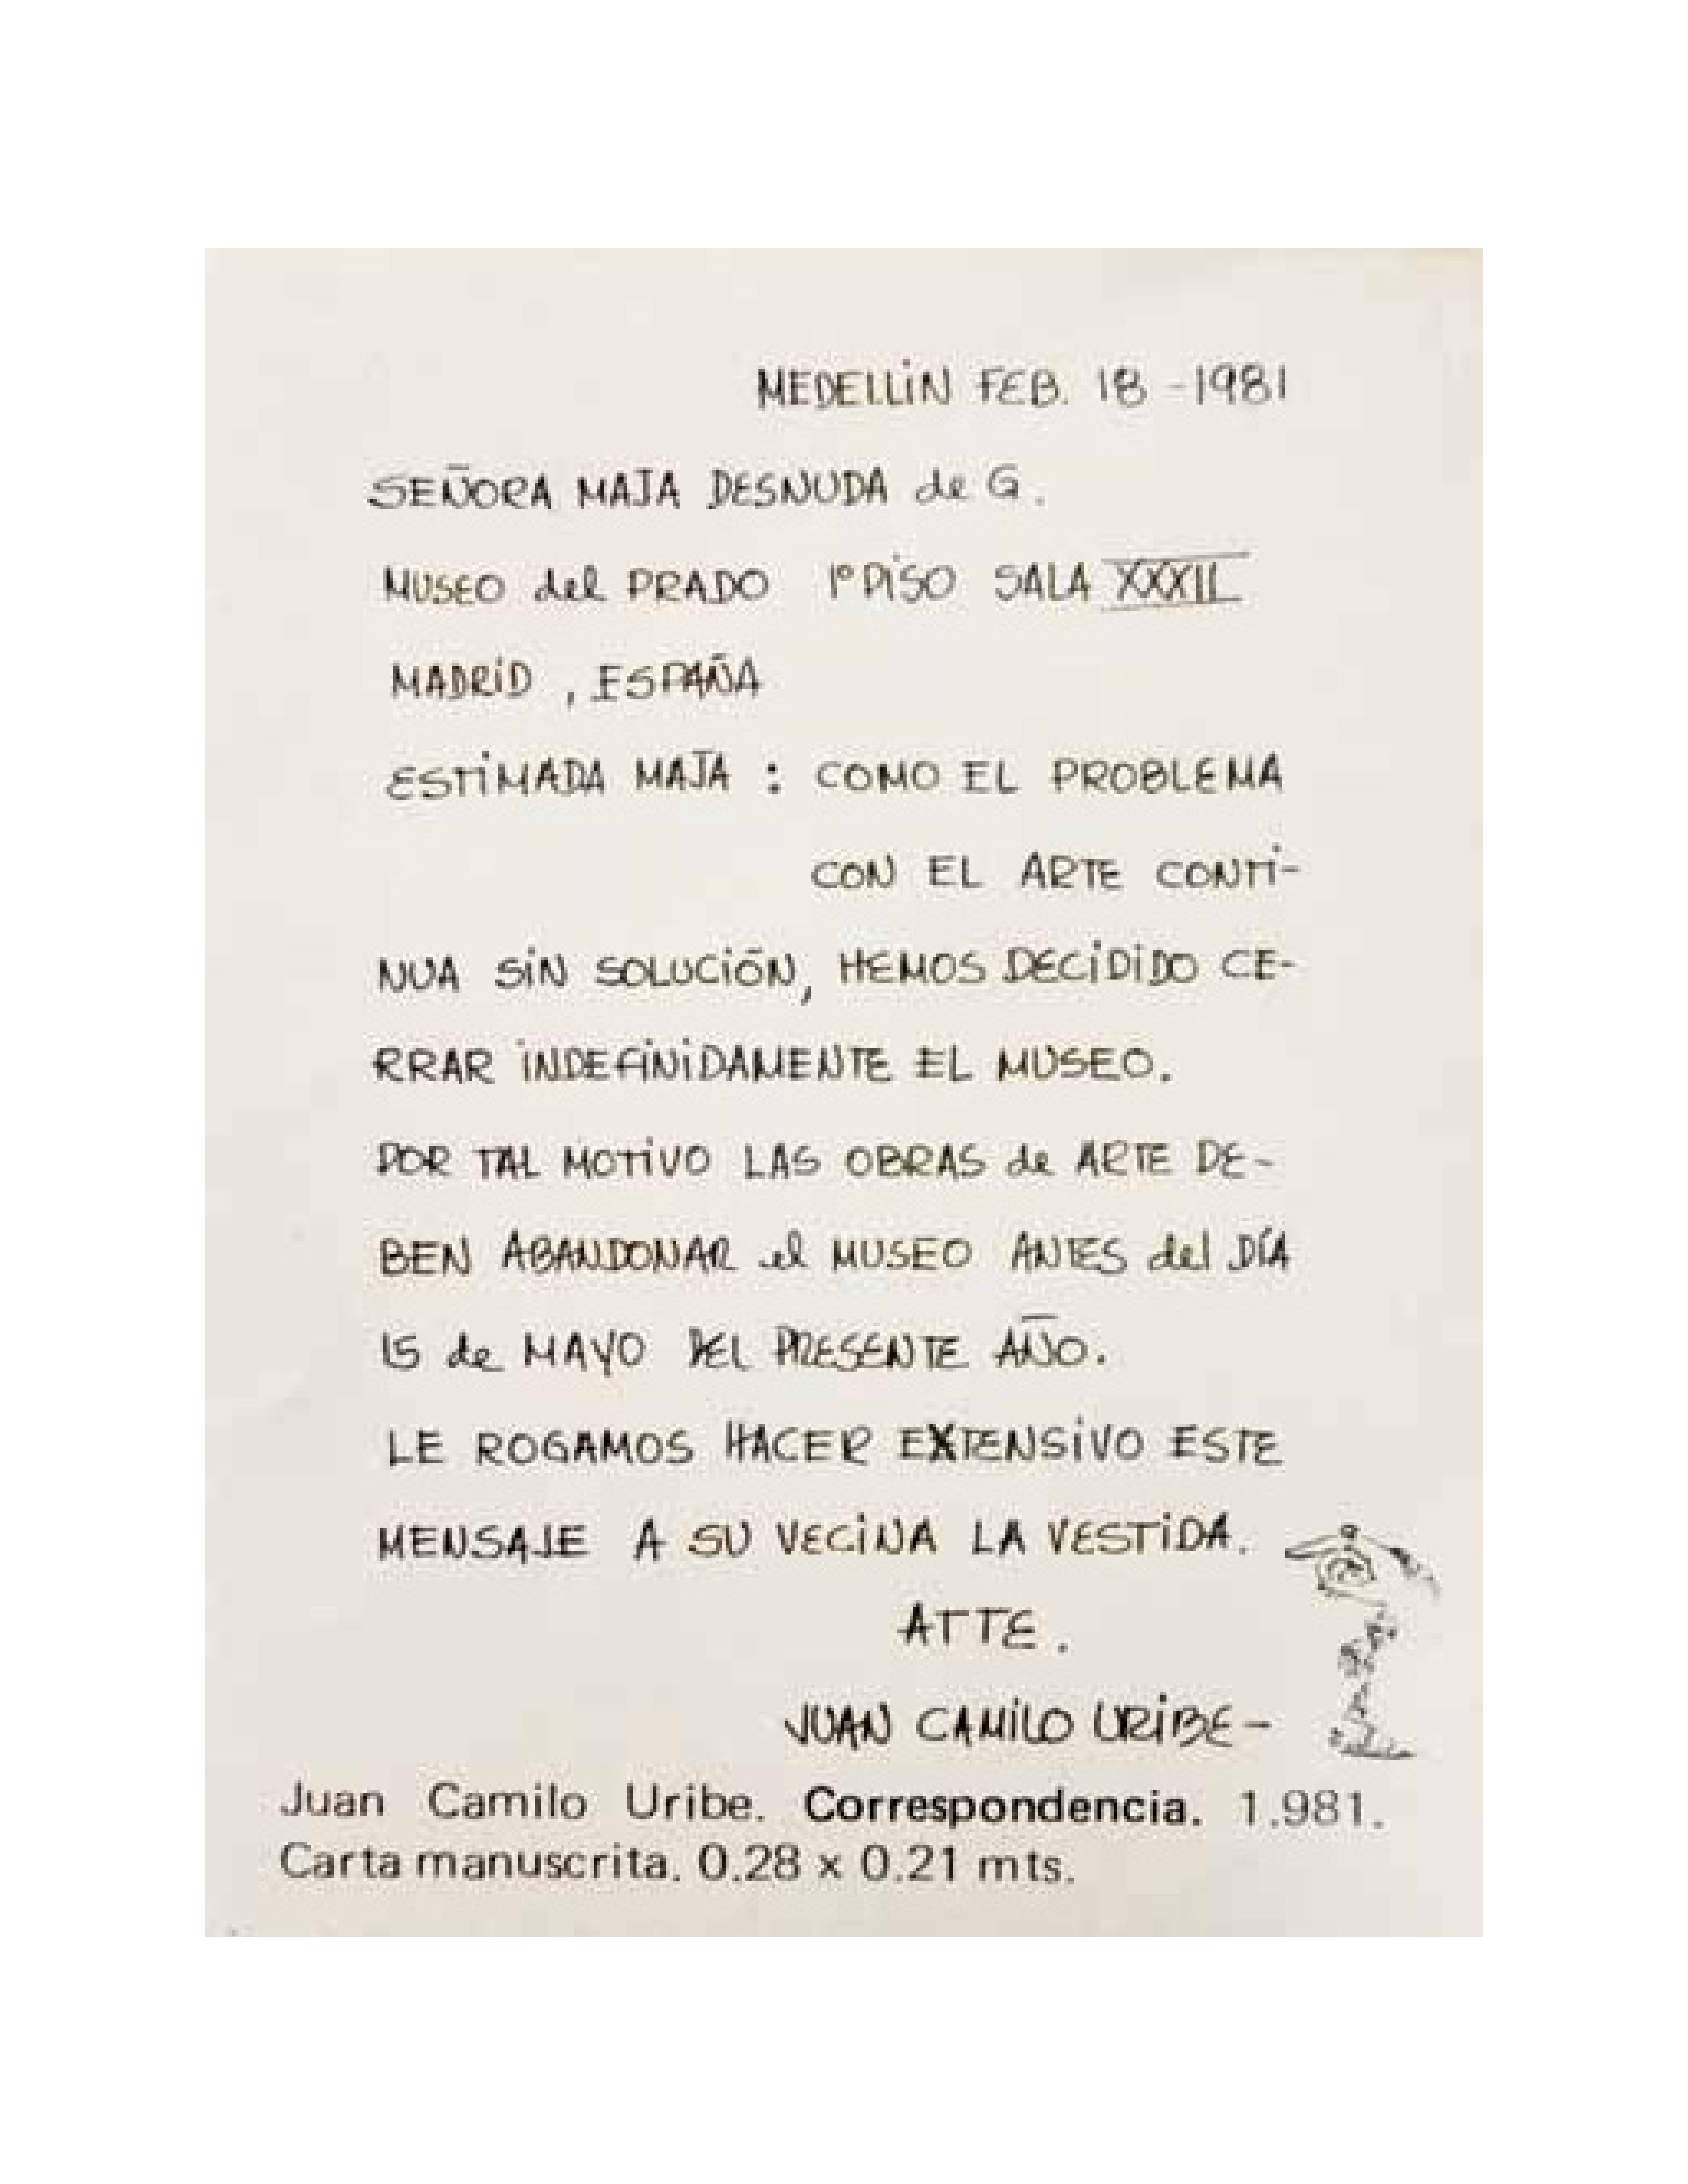 MEDELLÍN FEB. 18 -1981
SEÑORA MAJA DESNUDA de G.
MUSEO del PRADO 1º PISO SALA XXXII
MADRID , ESPAÑA
ESTIMADA MAJA : COMO EL PROBLEMA
CON EL ARTE CONTI-
NUA SIN SOLUCIÓN, HEMOS DECIDIDO CE-
RRAR INDEFINIDAMENTE EL MUSEO.
POR TAL MOTIVO LAS OBRAS de ARTE DE-
BEN ABANDONAR el MUSEO ANTES del DÍA
15 de MAYO DEL PRESENTE AÑO.
LE ROGAMOS HACER EXTENSIVO ESTE
MENSAJE A SU VECINA LA VESTIDA.
ATTE.
JUAN CAMILO URIBE-
Juan Camilo Uribe. Correspondencia. 1.981.
Carta manuscrita. 0.28 x 0.21 mts.